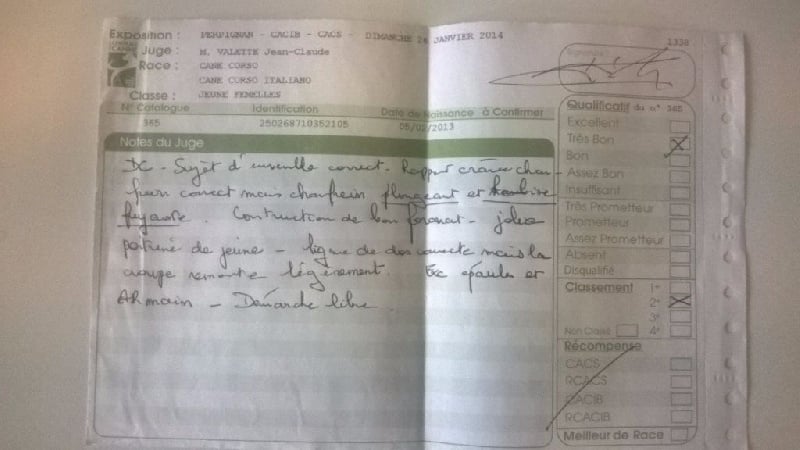 Exposition : PERPIGNAN - CACIB - CACS - DIMANCHE 26 JANVIER 2014
Juge : M. VALETTE Jean-Claude
Race : CANE CORSO
CANE CORSO ITALIANO
Classe : JEUNE FEMELLES
1338
N° Catalogue Identification Date de Naissance à Confirmer
365 250268710352105 05/02/2013
Notes du Juge
DC - Sujet d'ensemble correct - Rapport crâne chan-
frein correct mais chanfrein plongeant et
fuyante. Construction de bon format - jolie
poitrine de jeune - ligne de dos correcte mais la
croupe remonte légèrement. Ex épaules et
AR main - Démarche libre.
Qualificatif du n° 365
Excellent
Très Bon
Bon
Assez Bon
Insuffisant
Très Prometteur
Prometteur
Assez Prometteur
Absent
Disqualifié
Classement 1°
2°
3°
Non Classé 4°
Récompense
CACS
RCACS
CACIB
RCACIB
Meilleur de Race